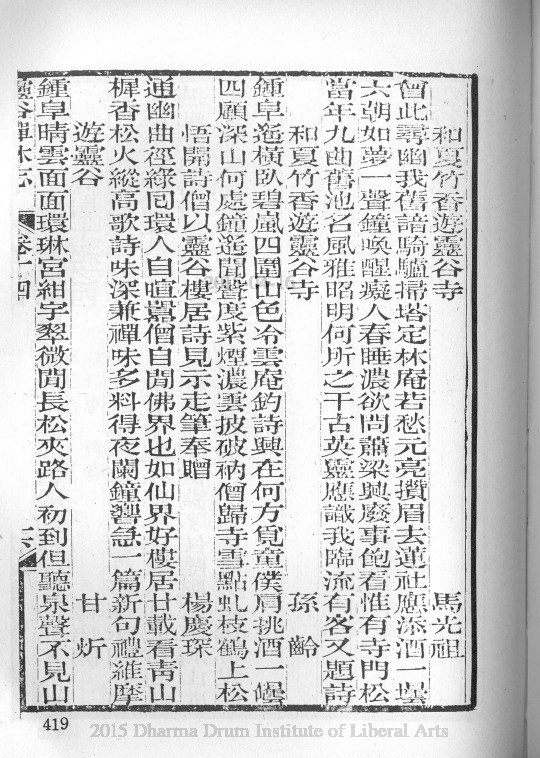 和夏竹香遊靈谷寺　馬光祖
僧此尋幽我舊諳騎驢掃塔定林庵若愁元亮攢眉去蓮社應添酒一壜
六朝如夢一聲鐘喚醒癡人春睡濃欲問蕭梁興廢事飽看惟有寺門松
當年九曲舊池名風雅昭明何所之千古英靈應識我臨流有客又題詩
和夏竹香遊靈谷寺　孫齡
鍾阜迤橫臥碧嵐四圍山色冷雲庵鈞詩興在何方覓童僕肩挑酒一壜
四顧深山何處鐘遙聞聲度紫煙濃雲披破衲僧歸寺雪點虬枝鶴上松
悟開詩僧以靈谷樓居詩見示走筆奉贈　楊慶琛
通幽曲徑綠囘環人自喧囂僧自閒佛界也如仙界好樓居廿載看靑山
樨香松火縱高歌詩味深兼禪味多料得夜闌鐘響急一篇新句禮維摩
遊靈谷　甘炘
鍾阜晴雲面面環琳宮紺宇翠微閒長松夾路人初到但聽泉聲不見山
靈谷禪林志　卷十四　六
419
2015 Dharma Drum Institute of Liberal Arts